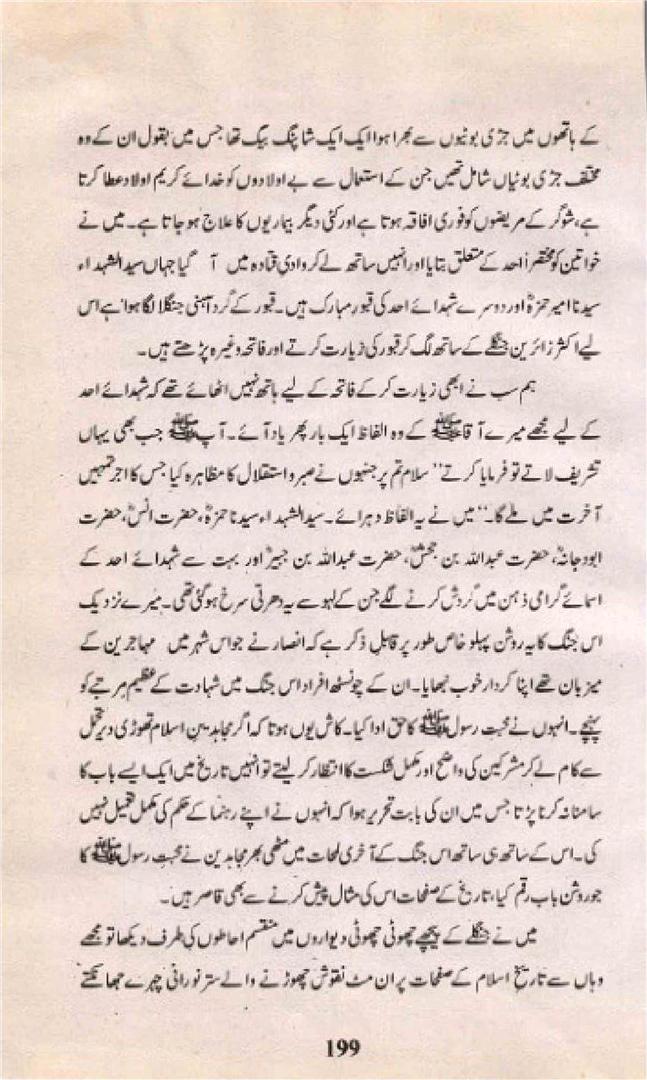 کے ہاتھوں میں جڑی بوٹیوں سے بھرا ہوا ایک ایک شاپنگ بیگ تھا جس میں بقول ان کے وہ
مختلف جڑی بوٹیاں شامل تھیں جن کے استعمال سے بے اولادوں کو خدائے کریم اولاد عطا کرتا
ہے، شوگر کے مریضوں کو فوری افاقہ ہوتا ہے اور کئی دیگر بیماریوں کا علاج ہو جاتا ہے۔ میں نے
خواتین کو مختصراً احد کے متعلق بتایا اور انہیں ساتھ لے کر وادی قناہ میں آ گیا جہاں سید الشہداء
سیدنا امیر حمزہؓ اور دوسرے شہدائے احد کی قبور مبارک ہیں۔ قبور کے گرد آہنی جنگلا لگا ہوا ہے اس
لیے اکثر زائرین جنگلے کے ساتھ لگ کر قبور کی زیارت کرتے اور فاتحہ وغیرہ پڑھتے ہیں۔
ہم سب نے ابھی زیارت کر کے فاتحہ کے لیے ہاتھ نہیں اٹھائے تھے کہ شہدائے احد
کے لیے مجھے میرے آقا ﷺ کے وہ الفاظ ایک بار پھر یاد آئے۔ آپ ﷺ جب بھی یہاں
تشریف لاتے تو فرمایا کرتے ”سلام تم پر جنہوں نے صبر و استقلال کا مظاہرہ کیا جس کا اجر تمہیں
آخرت میں ملے گا۔“ میں نے یہ الفاظ دہرائے۔ سید الشہداء سیدنا حمزہؓ، حضرت انسؓ، حضرت
ابودجانہؓ، حضرت عبداللہ بن جحشؓ، حضرت عبداللہ بن جبیرؓ اور بہت سے شہدائے احد کے
اسمائے گرامی ذہن میں گردش کرنے لگے جن کے لہو سے یہ دھرتی سرخ ہو گئی تھی۔ میرے نزدیک
اس جنگ کا یہ روشن پہلو خاص طور پر قابل ذکر ہے کہ انصار نے جو اس شہر میں مہاجرین کے
میزبان تھے اپنا کردار خوب نبھایا۔ ان کے چونسٹھ افراد اس جنگ میں شہادت کے عظیم مرتبے کو
پہنچے۔ انہوں نے محبت رسول ﷺ کا حق ادا کیا۔ کاش یوں ہوتا کہ اگر مجاہدین اسلام تھوڑی دیر تحمل
سے کام لے کر مشرکین کی واضح اور مکمل شکست کا انتظار کر لیتے تو انہیں تاریخ میں ایک ایسے باب کا
سامنا نہ کرنا پڑتا جس میں ان کی بابت تحریر ہوا کہ انہوں نے اپنے رہنما کے حکم کی مکمل تعمیل نہیں
کی۔ اس کے ساتھ ہی ساتھ اس جنگ کے آخری لمحات میں مٹھی بھر مجاہدین نے محبت رسول ﷺ کا
جو روشن باب رقم کیا، تاریخ کے صفحات اس کی مثال پیش کرنے سے بھی قاصر ہیں۔
میں نے جنگلے کے پیچھے چھوٹی چھوٹی دیواروں میں منقسم احاطوں کی طرف دیکھا تو مجھے
وہاں سے تاریخ اسلام کے صفحات پر ان مٹ نقوش چھوڑنے والے ستر نورانی چہرے جھانکتے
199